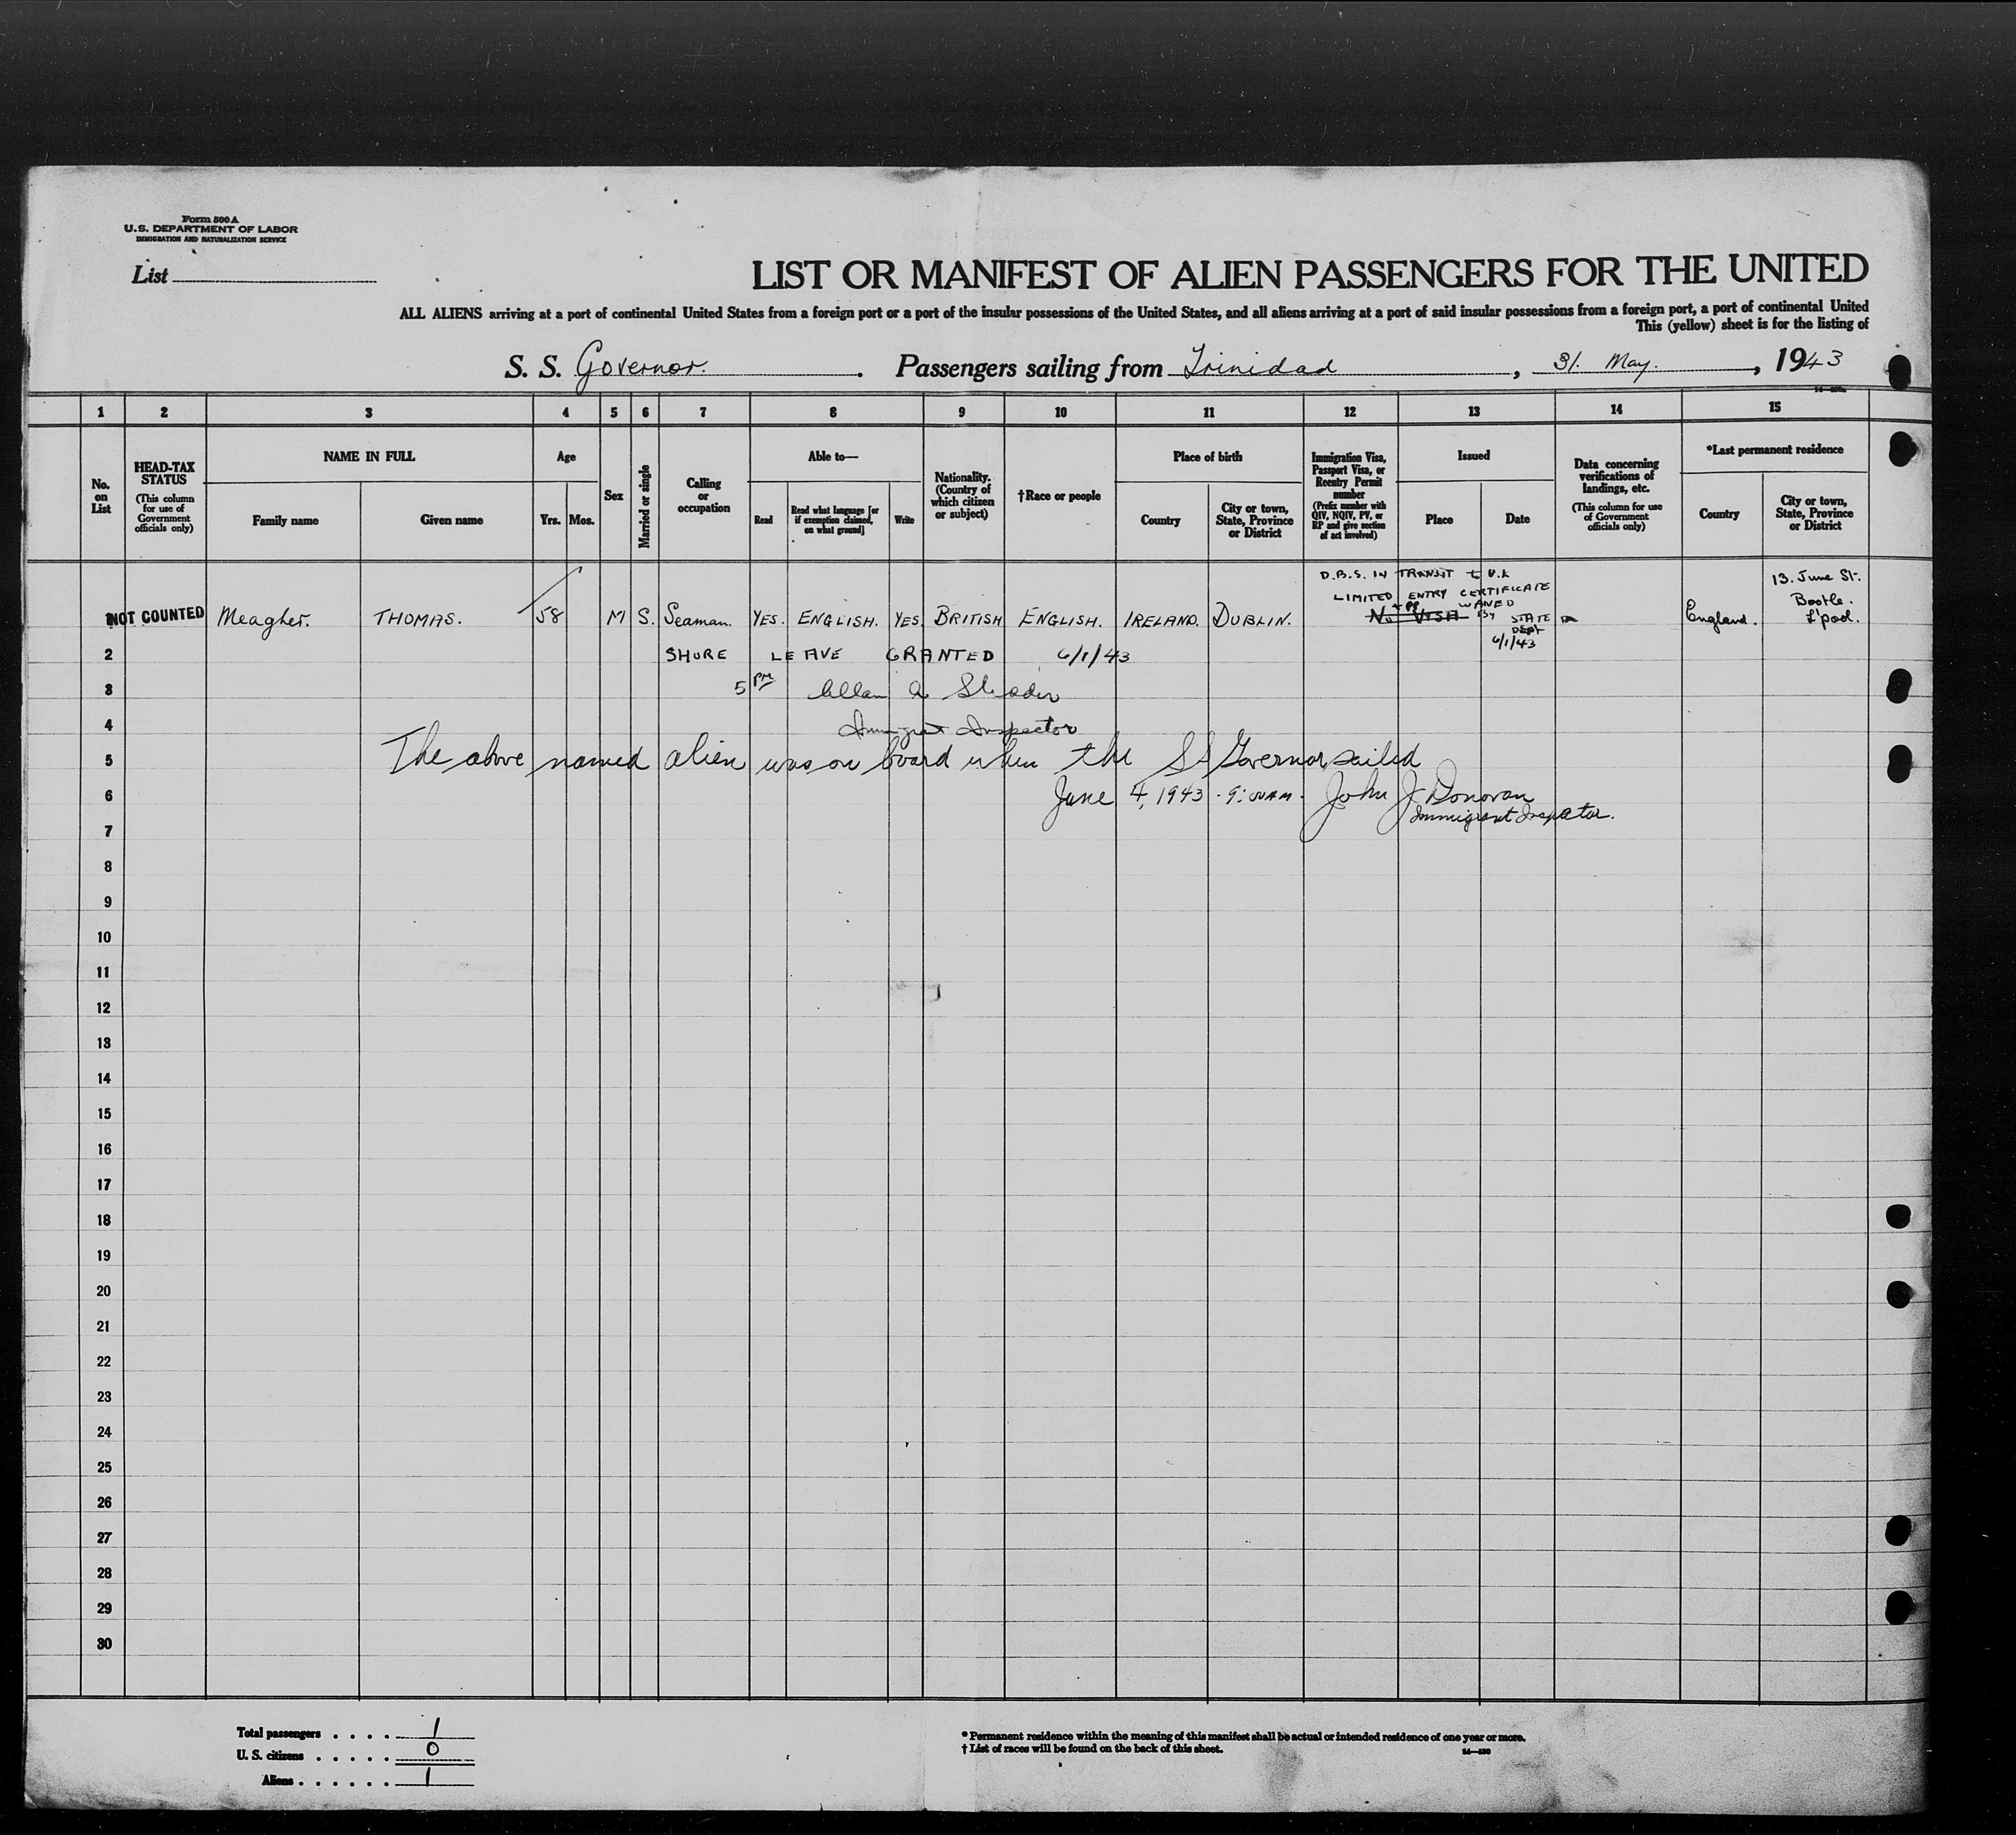 Form 500 A
U.S. DEPARTMENT OF LABOR
IMMIGRATION AND NATURALIZATION SERVICE
List
LIST OR MANIFEST OF ALIEN PASSENGERS FOR THE UNITED
ALL ALIENS arriving at a port of continental United States from a foreign port or a port of the insular possessions of the United States, and all aliens arriving at a port of said insular possessions from a foreign port, a port of continental United
This (yellow) sheet is for the listing of
S. S. Governor. Passengers sailing from Trinidad, 31. May., 1943
1 2 3 4 5 6 7 8 9 10 11 12 13 14 15
No. on List
HEAD-TAX STATUS (This column for use of Government officials only)
NAME IN FULL
Family name
Given name
Age
Yrs.
Mos.
Sex
Married or single
Calling or occupation
Able to—
Read
Read what language [or if exemption claimed, on what ground]
Write
Nationality. (Country of which citizen or subject)
†Race or people
Place of birth
Country
City or town, State, Province or District
Immigration Visa, Passport Visa, or Reentry Permit number (Prefix number with QIV, NQIV, PV, or RP and give section of act involved)
Issued
Place
Date
Data concerning verifications of landings, etc. (This column for use of Government officials only)
*Last permanent residence
Country
City or town, State, Province or District
D.B.S. IN TRANSIT to U.K
LIMITED ENTRY CERTIFICATE
+ PP WAIVED
No VISA BY STATE
DEPT
6/1/43
NOT COUNTED Meagher. THOMAS. 58 M S. Seaman. YES. ENGLISH. YES. BRITISH ENGLISH. IRELAND. DUBLIN. England. 13. June St. Bootle. L'pool.
2 SHORE LEAVE GRANTED 6/1/43
3 5 PM Allan
4 Immigrant Inspector
5 The above named alien was on board when the SS Governor sailed
6 June 4, 1943 - 9:00 AM. John J Donovan
Immigrant Inspector.
7
8
9
10
11
12
13
14
15
16
17
18
19
20
21
22
23
24
25
26
27
28
29
30
Total passengers . . . . 1
U. S. citizens . . . . . 0
Aliens . . . . . . 1
* Permanent residence within the meaning of this manifest shall be actual or intended residence of one year or more.
† List of races will be found on the back of this sheet.